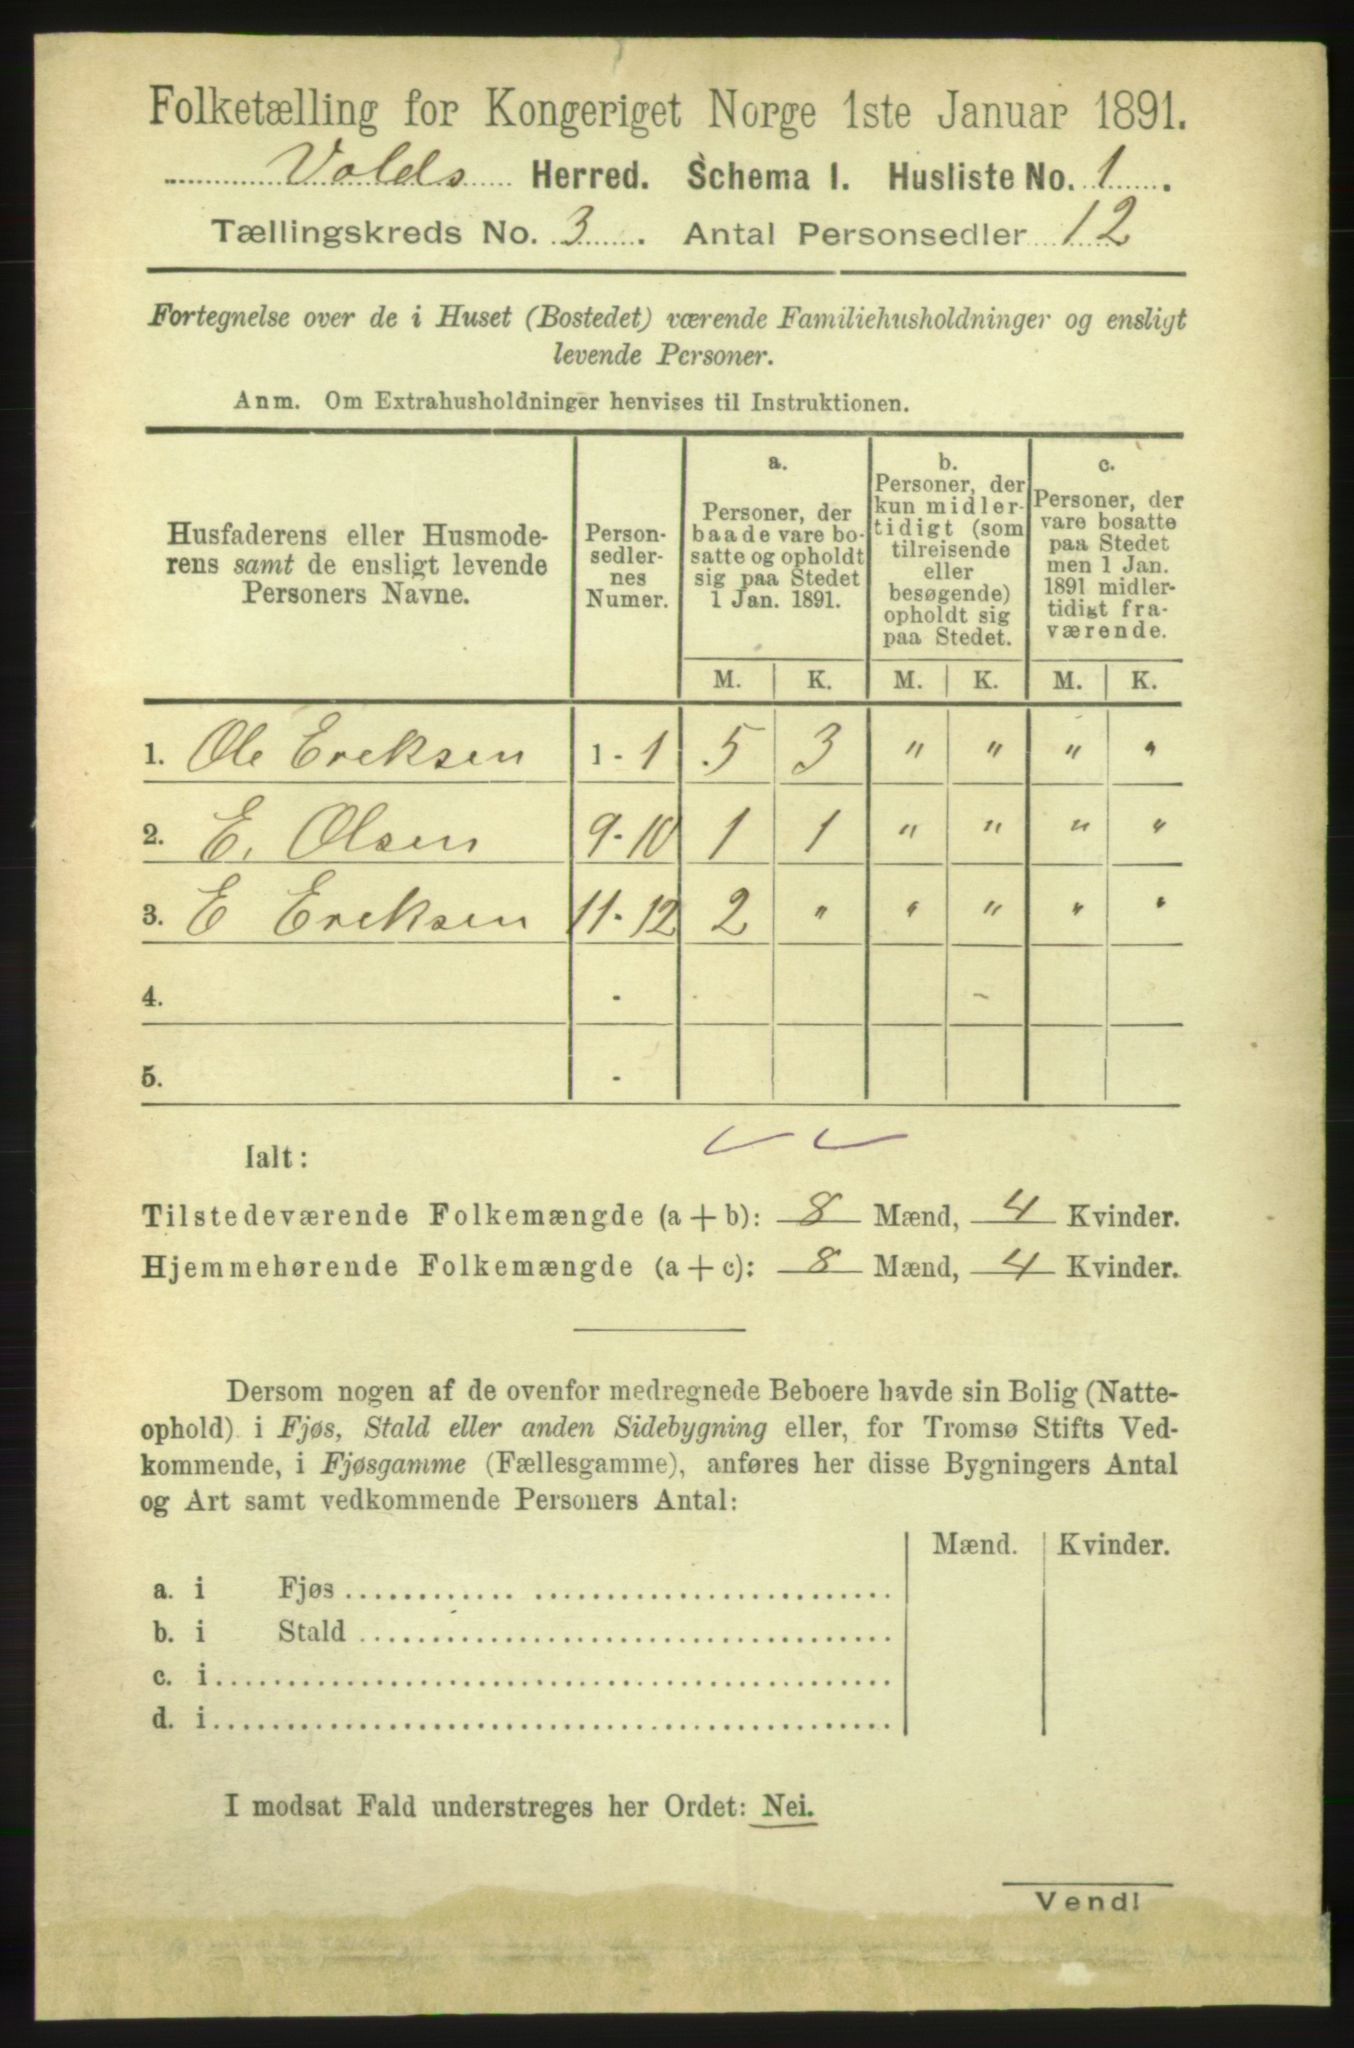 Folketælling for Kongeriget Norge 1ste Januar 1891.
Volds Herred. Schema I. Husliste No. 1.
Tællingskreds No. 3. Antal Personsedler 12
Fortegnelse over de i Huset (Bostedet) værende Familiehusholdninger og ensligt
levende Personer.
Anm. Om Extrahusholdninger henvises til Instruktionen.
Husfaderens eller Husmode-
rens samt de ensligt levende
Personers Navne.
Person-
sedler-
nes
Numer.
a.
Personer, der
baade vare bo-
satte og opholdt
sig paa Stedet
1 Jan. 1891.
b.
Personer, der
kun midler-
tidigt (som
tilreisende
eller
besøgende)
opholdt sig
paa Stedet.
c.
Personer, der
vare bosatte
paa Stedet
men 1 Jan.
1891 midler-
tidigt fra-
værende.
M. K. M. K. M. K.
1. Ole Ereksen 1 - 1 5 3 " " " "
2. E. Olsen 9-10 1 1 " " " "
3. E Ereksen 11-12 2 " " " " "
4. -
5. -
Ialt:
Tilstedeværende Folkemængde (a + b): 8 Mænd, 4 Kvinder.
Hjemmehørende Folkemængde (a + c): 8 Mænd, 4 Kvinder.
Dersom nogen af de ovenfor medregnede Beboere havde sin Bolig (Natte-
ophold) i Fjøs, Stald eller anden Sidebygning eller, for Tromsø Stifts Ved-
kommende, i Fjøsgamme (Fællesgamme), anføres her disse Bygningers Antal
og Art samt vedkommende Personers Antal:
Mænd. Kvinder.
a. i Fjøs
b. i Stald
c. i
d. i
I modsat Fald understreges her Ordet: Nei.
Vend!